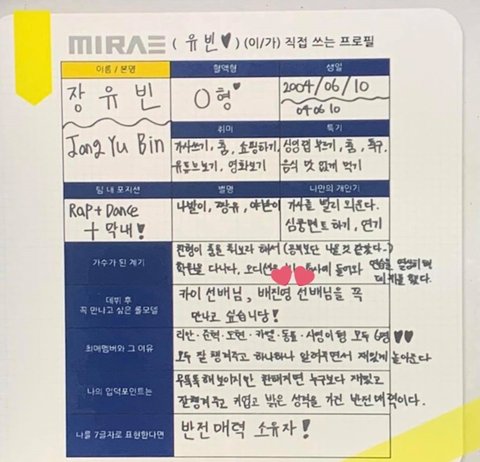 MIRAE ( 유빈♥ ) (이/가) 직접 쓰는 프로필
이름 / 본명
혈액형
생일
장 유 빈
O형♥
2004/06/10
040610
Jang Yu Bin
취미
특기
가사쓰기, 춤, 쇼핑하기,
유튜브보기, 영화보기
싱잉랩 부르기, 춤, 축구,
음식 맛 없게 먹기
팀 내 포지션
별명
나만의 개인기
RAP + Dance
+ 막내!
나발이, 짱유,
가사를 빨리 외운다.
심쿵멘트하기, 연기
가수가 된 계기
친형이 춤을 춰보라 해서 (공부보단 나을 것 같았다..)
학원을 다니다, 오디션을 들어와 연습을 열심히 해
데뷔를 했다.
데뷔 후
꼭 만나고 싶은 롤모델
카이 선배님, 배진영 선배님을 꼭
만나고 싶습니당!
최애멤버와 그 이유
리안·준혁·도현·카엘·동표·시영이형 모두 6명 ♥♥
모두 잘 챙겨주고 하나하나 알려주면서 재밌게 놀아준다
나의 입덕포인트는
무뚝뚝해보이지만 친해지면 누구보다 재밌고
잘챙겨주고 귀엽고 밝은 성격을 가진 반전매력이다.
나를 7글자로 표현한다면
반전매력 소유자!